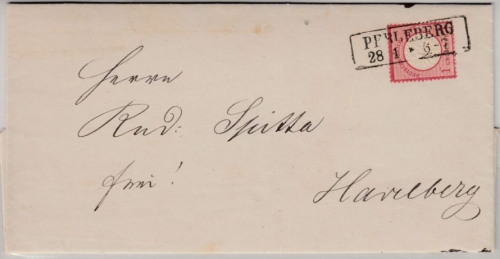 PERLEBERG
28 1
Herrn
Rud: Spitta
frei!
Havelberg